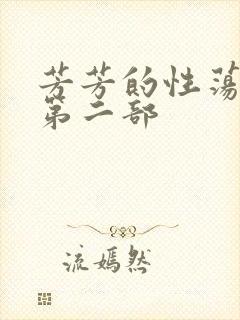 芳芳的性荡
第二部
流嫣然